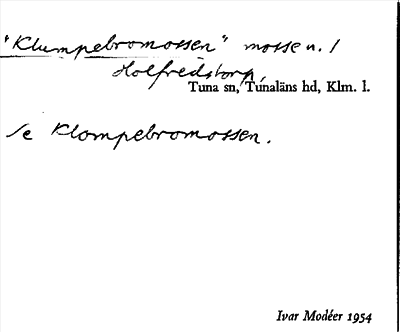 "Klumpebromossen" mosse n. l
Holfredstorp,
Tuna sn, Tunaläns hd, Klm. l.
se Klompebromossen.
Ivar Modéer 1954